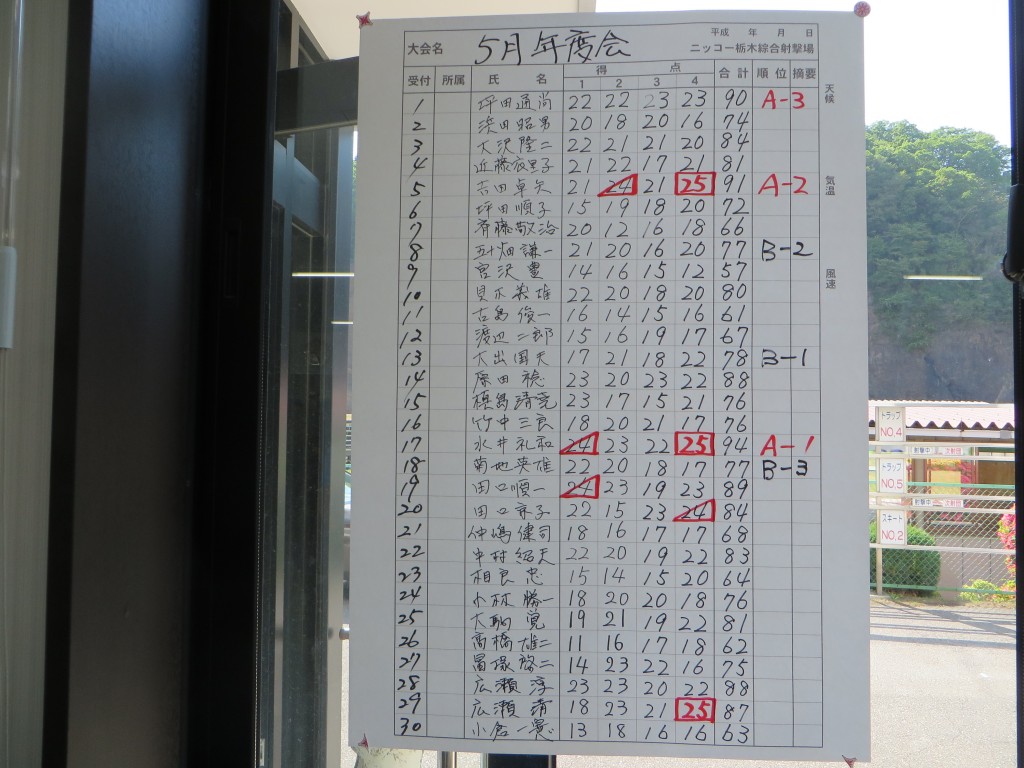 平成 年 月 日
大会名 5月年度会 ニッコー栃木綜合射撃場
受付 所属 氏 名 得 点 合計 順位 摘要
1 2 3 4
天候
気温
風速
1 坪田通尚 22 22 23 23 90 A-3
2 浜田昭男 20 18 20 16 74
3 大沢隆二 22 21 21 20 84
4 近藤衣里子 21 22 17 21 81
5 吉田卓矢 21 24 21 25 91 A-2
6 坪田順子 15 19 18 20 72
7 斉藤敬治 20 12 16 18 66
8 五十畑謙一 21 20 16 20 77 B-2
9 宮沢 14 16 15 12 57
10 英雄 22 20 18 20 80
11 古島俊一 16 14 15 16 61
12 渡辺二郎 15 16 19 17 67
13 大出国夫 17 21 18 22 78 B-1
14 原田稔 23 20 23 22 88
15 23 17 15 21 76
16 竹中三良 18 20 21 17 76
17 水井礼和 24 23 22 25 94 A-1
18 菊地英雄 22 20 18 17 77 B-3
19 田口順一 24 23 19 23 89
20 田口京子 22 15 23 24 84
21 仲嶋健司 18 16 17 17 68
22 中村紹夫 22 20 19 22 83
23 相良忠 15 14 15 20 64
24 小林勝一 18 20 20 18 76
25 大駒覚 19 21 19 22 81
26 高橋雄二 11 16 17 18 62
27 啓二 14 23 22 16 75
28 広瀬淳 23 23 20 22 88
29 広瀬清 18 23 21 25 87
30 小倉一 13 18 16 16 63
トラップ
NO.4
トラップ
NO.5
スキート
NO.2